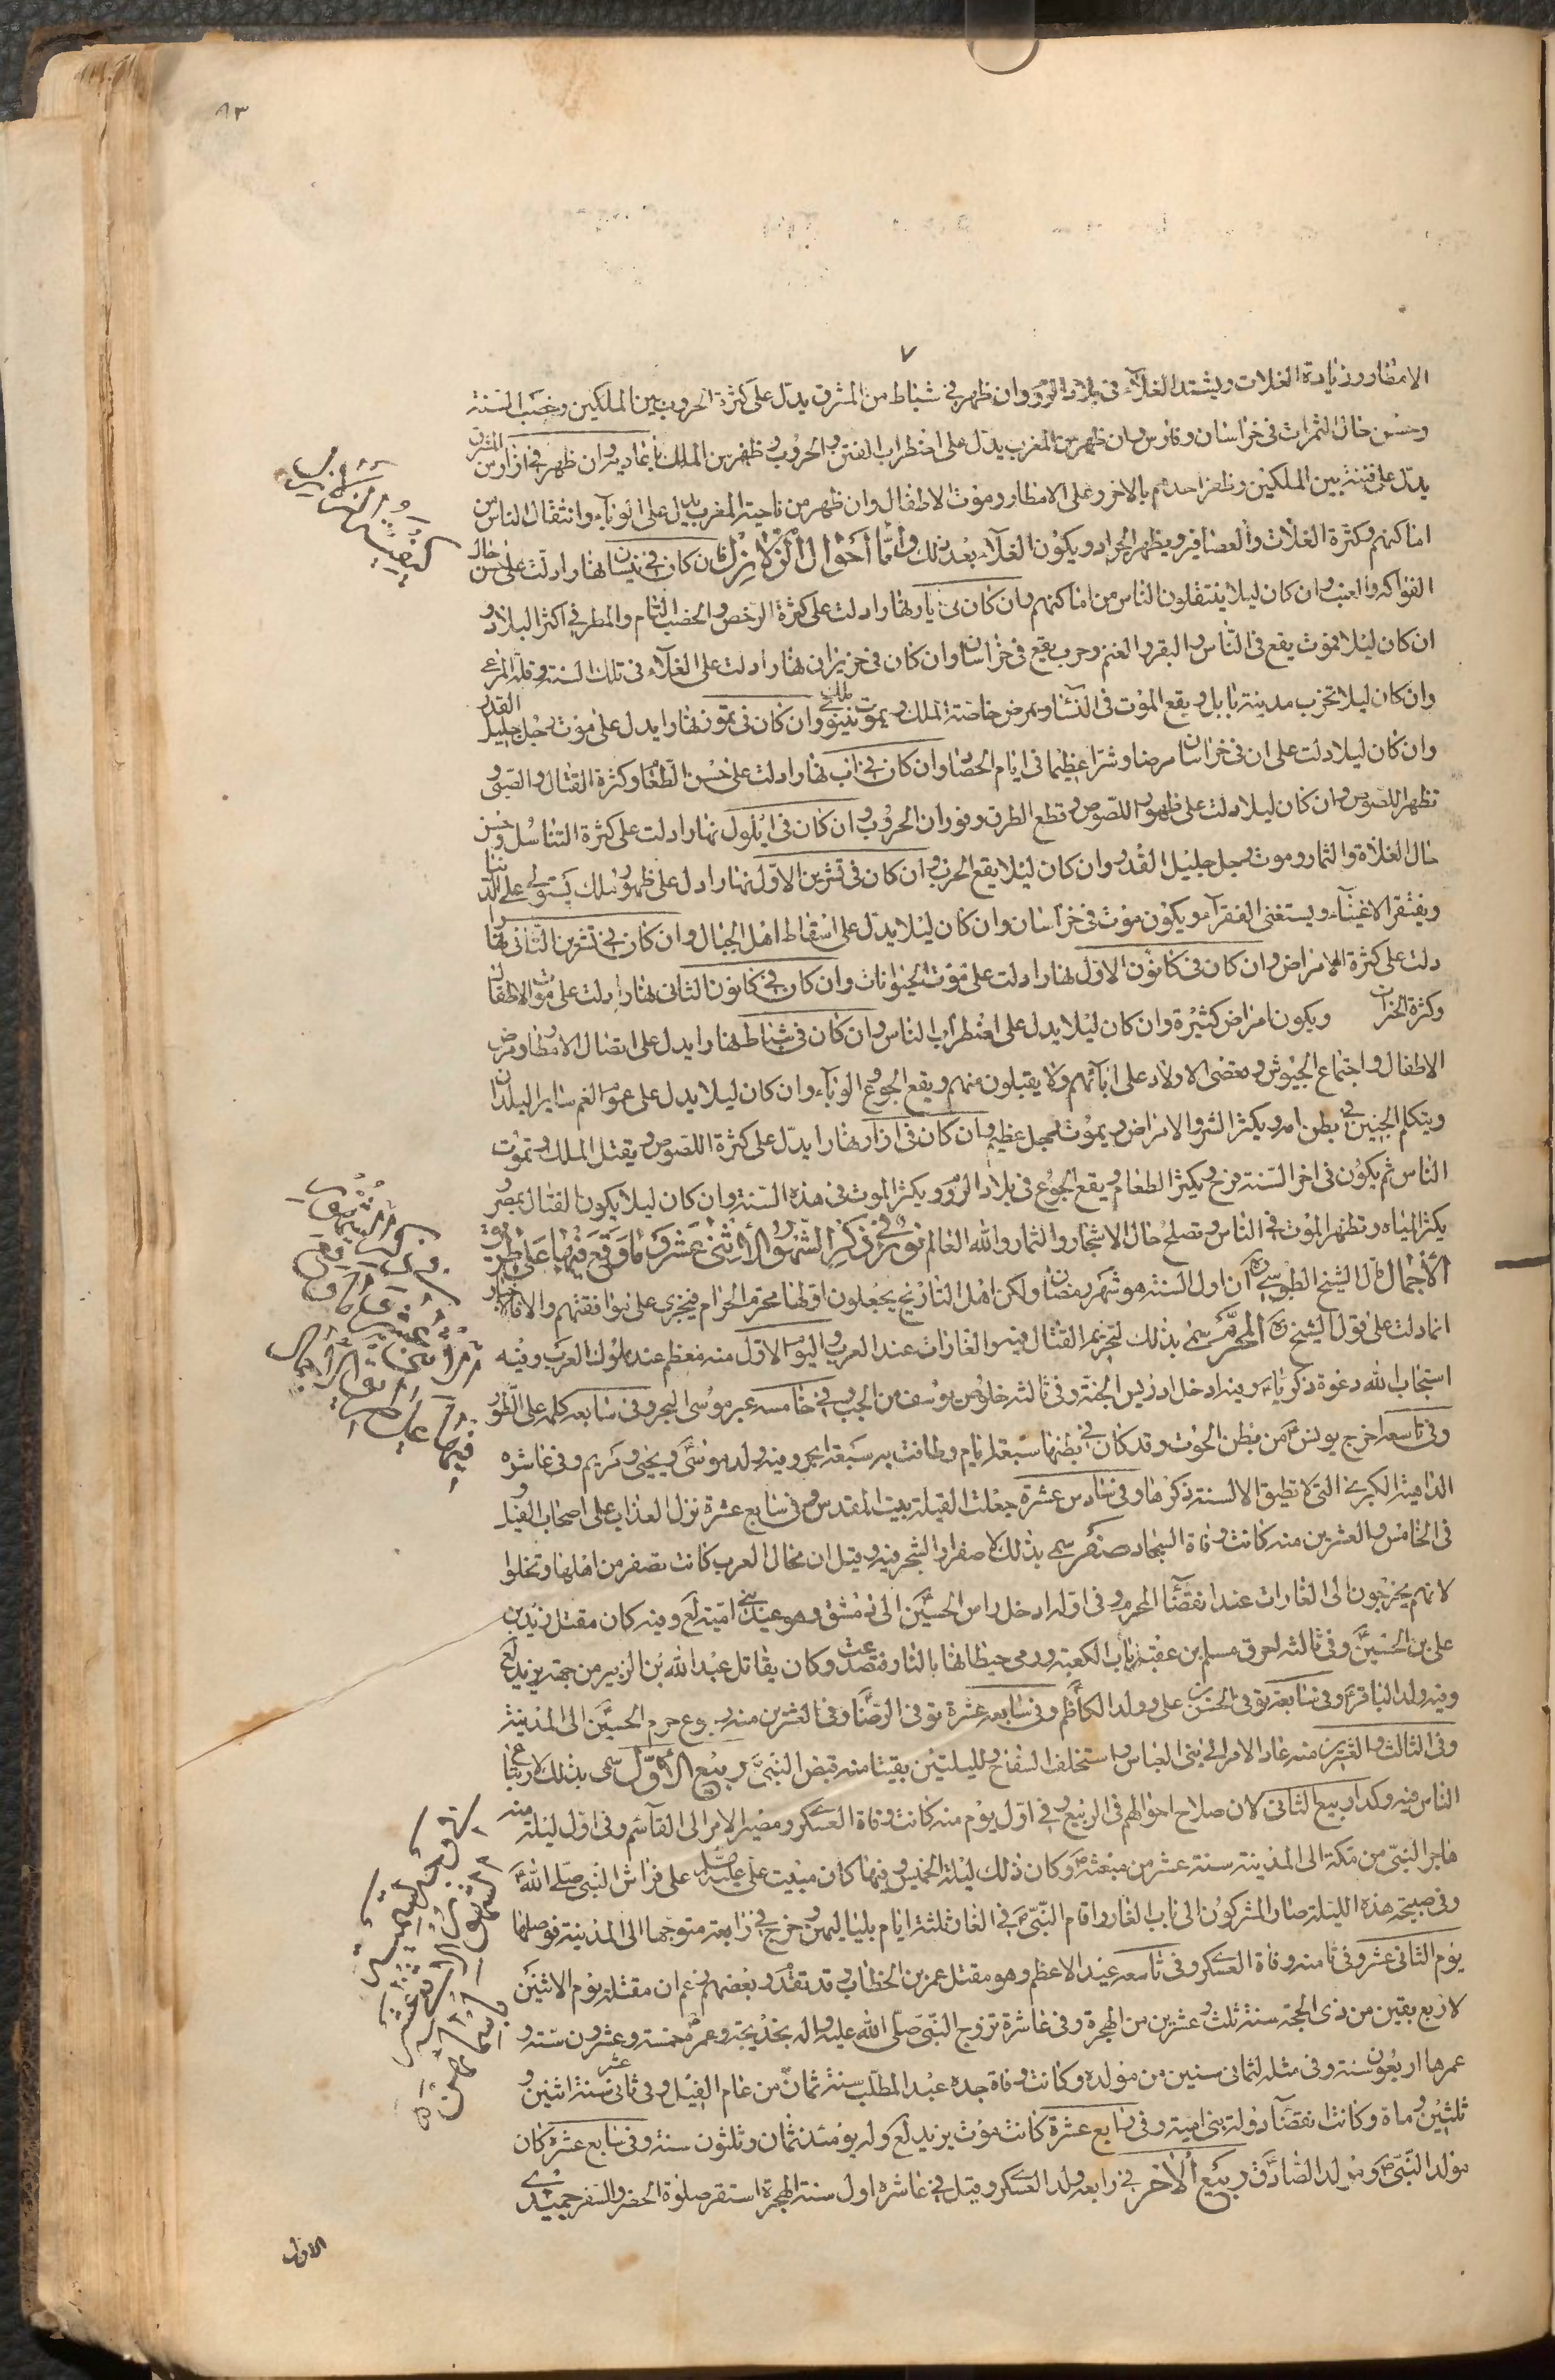 ٨٣
٧
الامطار وزيادة الغلات ويشتد الغلآء فى بلاد الروم وان ظهر فى شباط من المشرق يدل على كثرة الحروب بين الملكين وخصب السنة
وحسن حال الثمرات فى خراسان وفارس وان ظهر من المغرب يدل على اضطراب الفتن والحروب وظفر من الملك باعاديه وان ظهر فى اذار من المشرق
يدل على فتنة بين الملكين وظفر احدهم بالاخر وعلى الامطار وموت الاطفال وان ظهر من ناحية المغرب يدل على الوبآء وانتقال الناس من
اماكنهم وكثرة الغلات والعصافير ويظهر الجراد ويكون الغلآء بعد ذلك واما احوال الزلازل فان كان فى نيسان نهارا دلت على حسن حال
الفواكه والعنب وان كان ليلا ينتقلون الناس من اماكنهم وان كان فى ايار نهارا دلت على كثرة الرخص والخصب التام والمطر فى اكثر البلاد و
ان كان ليلا فموت يقع فى الناس والبقر والغنم وحرب يقع فى خراسان وان كان فى حزيران نهارا دلت على الغلآء فى تلك السنة وقلة المرعى
وان كان ليلا تخرب مدينة بابل ويقع الموت فى النسآء ويمرض خاصة الملك ويموت ملك نينوى وان كان فى تموز نهارا يدل على موت رجل جليل القدر
وان كان ليلا دلت على ان فى خراسان مرضا وشرا عظيما فى ايام الحصاد وان كان فى اب نهارا دلت على حسن الطعام وكثرة القتال والضيق و
تظهر اللصوص وان كان ليلا دلت على ظهور اللصوص وقطع الطرق وفوران الحروب وان كان فى ايلول نهارا دلت على كثرة التناسل وحسن
حال الغلاة والثمار وموت رجل جليل القدر وان كان ليلا يقع الحرب وان كان فى تشرين الاول نهارا دل على ظهور ملك يستولى على الدنيا
ويفتقر الاغنيآء ويستغنى الفقرآء ويكون موت فى خراسان وان كان ليلا يدل على اسقاط اهل الجبال وان كان فى تشرين الثانى نهارا
دلت على كثرة الامراض وان كان فى كانون الاول نهارا دلت على موت الحيوانات وان كان فى كانون الثانى نهارا دلت على موت الاطفال
وكثرة الخراب ويكون امراض كثيرة وان كان ليلا يدل على اضطراب الناس وان كان فى شباط نهارا يدل على اتصال الامطار ومرض
الاطفال واجتماع الجيوش وتعصى الاولاد على ابآئهم ولا يقبلون منهم ويقع الجوع والوبآء وان كان ليلا يدل على عموم الغم سائر البلدان
ويتكلم الجنين فى بطن امه ويكثر الشر والامراض ويموت رجل عظيم وان كان فى اذار نهارا يدل على كثرة اللصوص ويقتل الملك وتموت
الناس ثم يكون فى اخر السنة فرح ويكثر الطعام ويقع الجوع فى بلاد الروم ويكثر الموت فى هذه السنة وان كان ليلا يكون القتال بمصر و
يكثر المياه وتظهر الموت فى الناس وتصلح حال الاشجار والثمار والله العالم نور فى ذكر الشهور الاثنى عشر وما وقع فيها على طريق
الاجمال قال الشيخ الطوسى ره ان اول السنة هو شهر رمضان ولكن اهل التاريخ يجعلون اولها محرم الحرام فنجرى على نوافقتهم والاخبار
انما دلت على قول الشيخ ره المحرم سمى بذلك لتحريم القتال فيه والغارات عند العرب واليوم الاول منه معظم عند ملوك العرب وفيه
استجاب الله دعوة ذكريا ء وفيه ادخل ادريس الجنة وفى ثالثه خلوص يوسف من الجب وفى خامسه عبر موسى البحر وفى سابعه كلمه على الطور
وفى تاسعه اخرج يونس من بطن الحوت وقد كان فى بطنها سبعة ايام وطافت به سبعة ابحر وفيه ولد موسى ويحيى ومريم وفى عاشره
الداهية الكبرى التى لا تطيق الالسنة ذكرها وفى سادس عشره جعلت القبلة بيت المقدس وفى سابع عشرة نزل العذاب على اصحاب الفيل و
فى الخامس والعشرين منه كانت وفاة السجاد صفر سمى بذلك لاصفرار الشجر فيه وقيل ان محال العرب كانت تصفر من اهلها وتخلوا
لانهم يخرجون الى الغارات عند انقضآء المحرم وفى اوله ادخل راس الحسين الى دمشق وهو عيد بنى امية لع وفيه كان مقتل زيد بن
على بن الحسين وفى ثالثه احرق مسلم بن عقبة باب الكعبة ورمى حيطانها بالنار فتصدعت وكان يقاتل عبد الله بن الزبير من جهة يزيد لع
وفيه ولد الباقر وفى سابعه توفى الحسن بن على وولد الكاظم وفى سابع عشرة توفى الرضا وفى العشرين منه رجوع حرم الحسين الى المدينة
وفى الثالث والعشرين منه عاد الامر الى بنى العباس واستخلف السفاح ولليلتين بقيتا منه قبض النبى ص ربيع الاول سمى بذلك لارتباع
الناس فيه وكذا ربيع الثانى لان صلاح احوالهم فى الربيع وفى اول يوم منه كانت وفاة العسكرى ومصير الامر الى القآئم وفى اول ليلة منه
هاجر النبى من مكة الى المدينة سنة عشر من مبعثه وكان ذلك ليلة الخميس وفيها كان مبيت على عليه السلم على فراش النبى صلى الله
وفى صبيحة هذه الليلة صار المشركون الى باب الغار واقام النبى ص فى الغار ثلثة ايام بلياليهن وخرج فى رابعه متوجها الى المدينة فوصلها
يوم الثانى عشر وفى ثامنه وفاة العسكرى وفى تاسعه عيد الاعظم وهو مقتل عمر بن الخطاب وقد تقدم وبعضهم زعم ان مقتله يوم الاثنين
لاربع بقين من ذى الحجة سنة ثلث وعشرين من الهجرة وفى عاشرة تزوج النبى صلى الله عليه واله بخديجة وعمره خمسة وعشرون سنة و
عمرها اربعون سنة وفى مثله لثمانى سنين من مولده وكانت وفاة جده عبد المطلب سنة ثمان من عام الفيل وفى ثانى عشر سنة اثنين و
ثلثين وماة وكانت انقضآء دولة بنى امية وفى رابع عشرة كانت موت يزيد لع وله يومئذ ثمان وثلثون سنة وفى سابع عشره كان
مولد النبى ص ومولد الصادق ربيع الاخر فى رابعه ولد العسكرى وقيل فى عاشره اول سنة الهجرة استقر صلوة الحضر والسفر جميدى
الاول